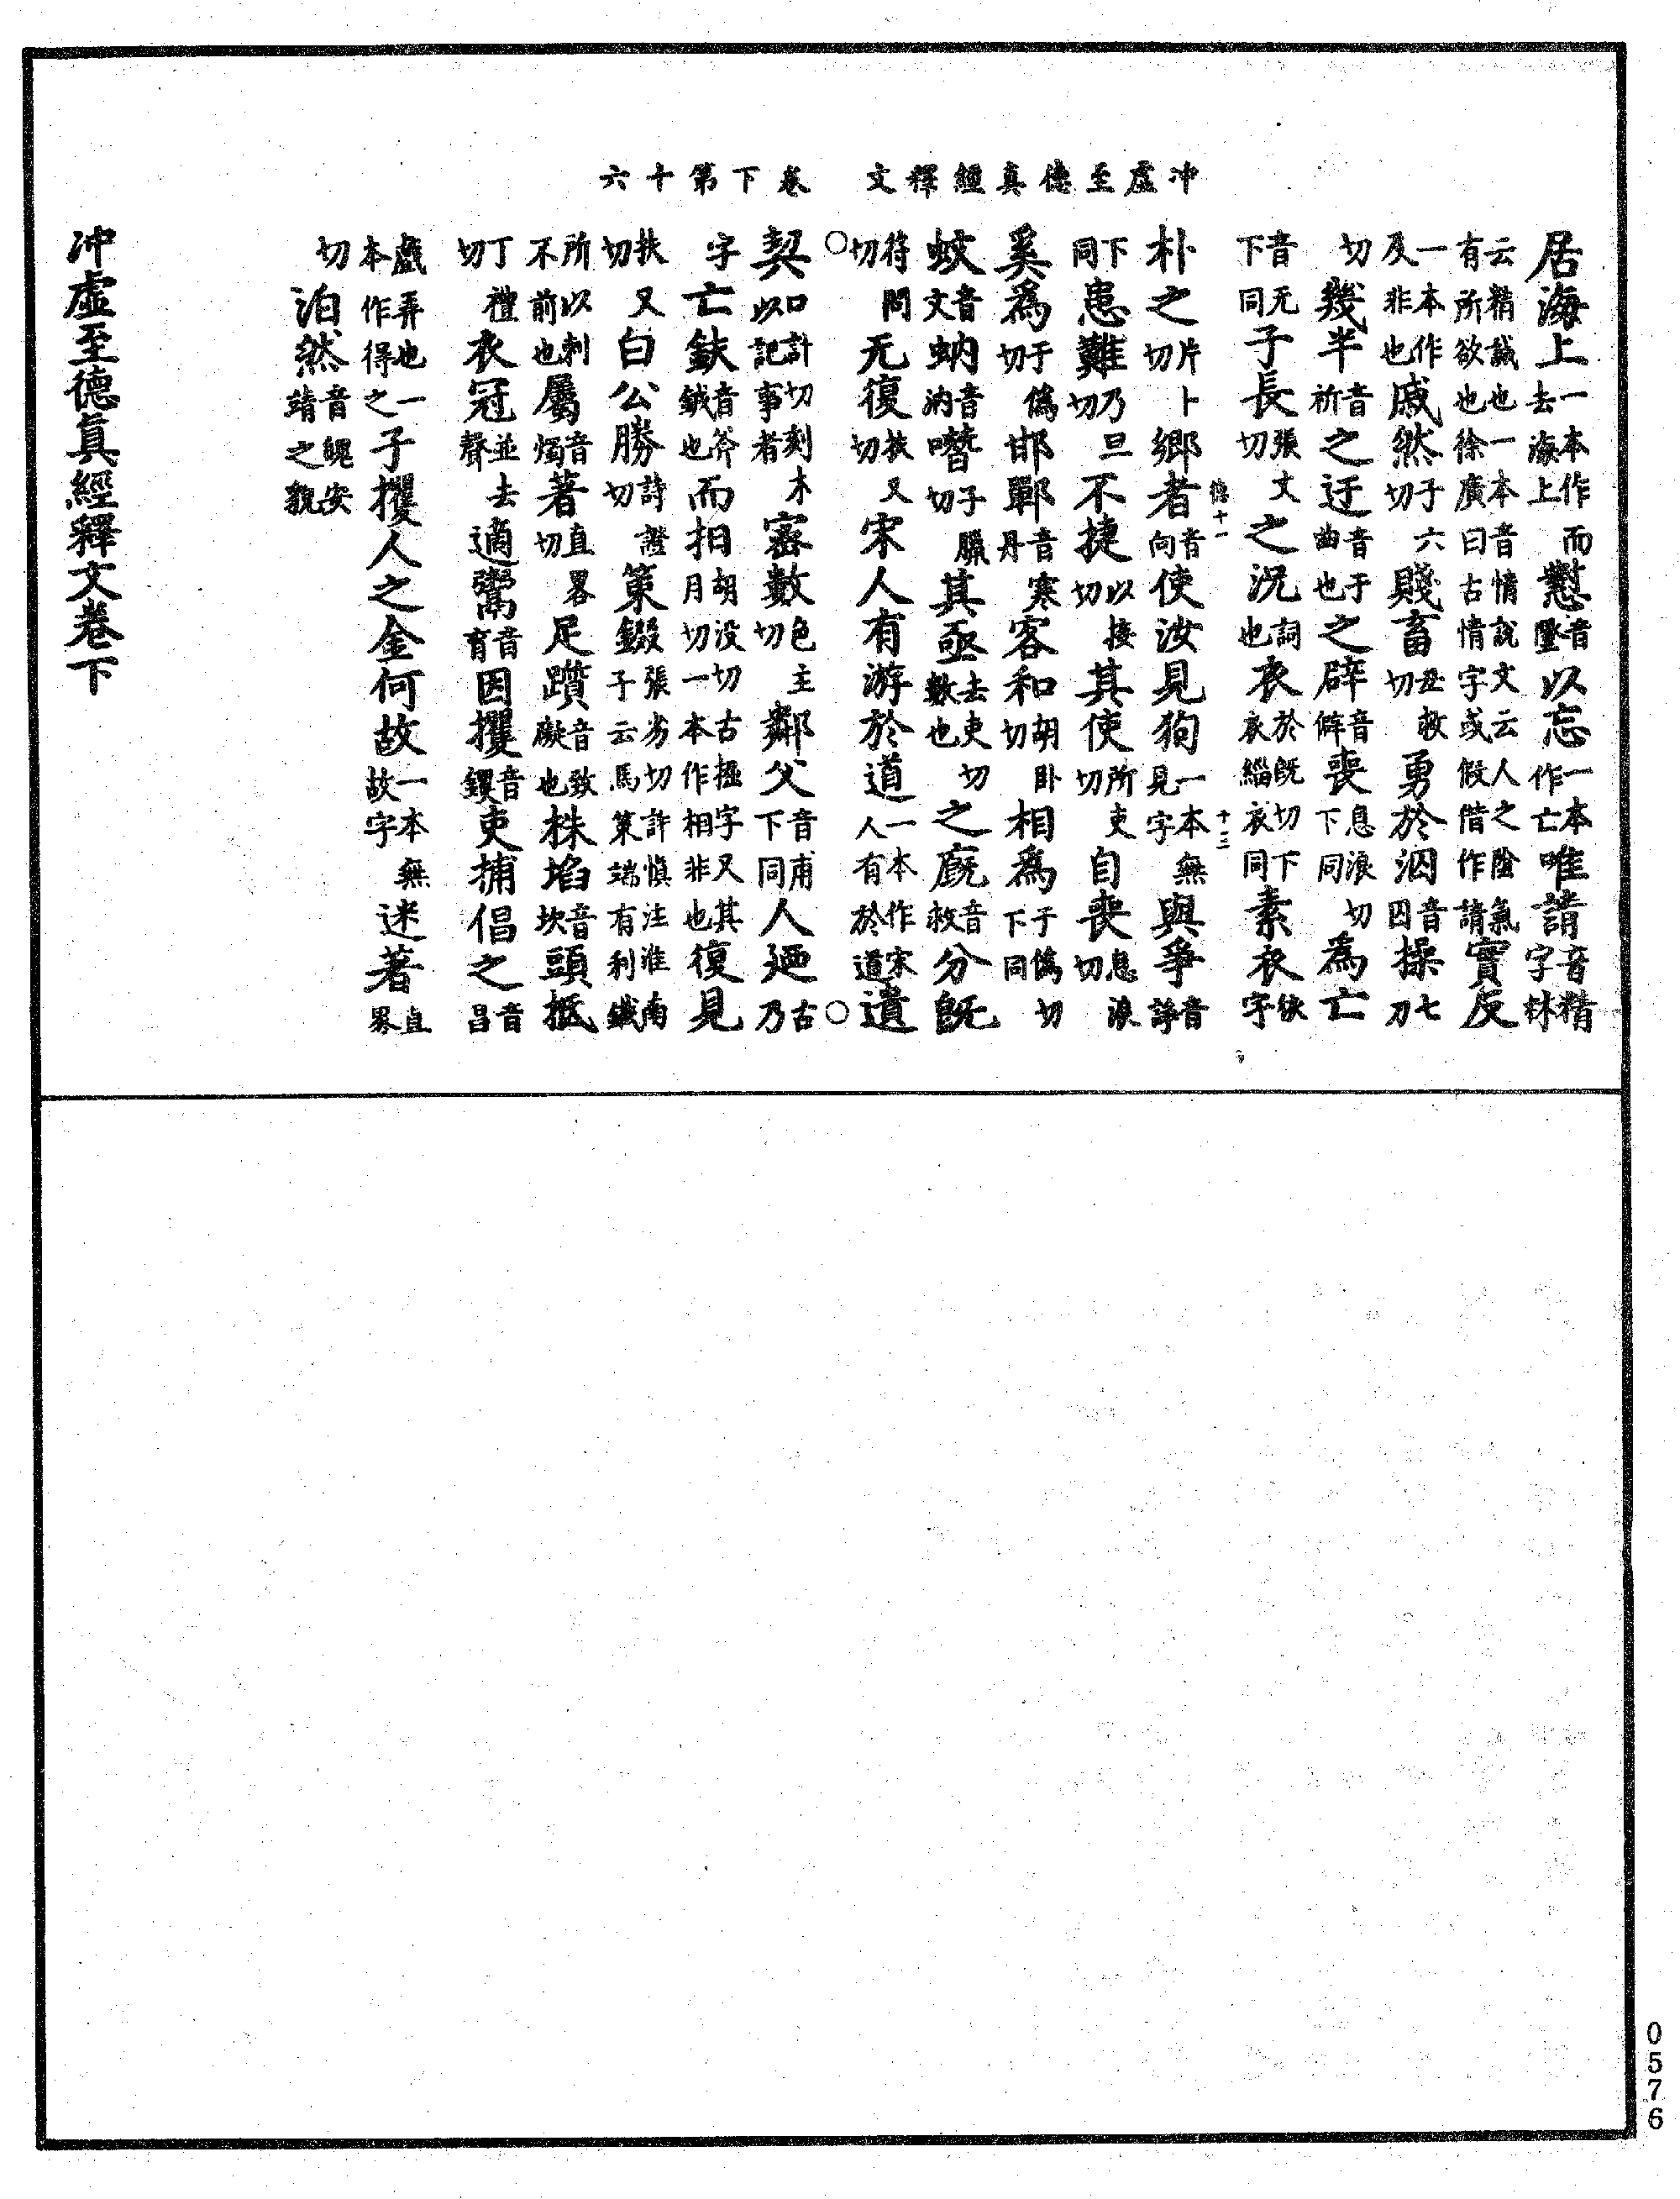 冲虛至德真經釋文　卷下第十六
居海上一本作而去海上懟音墜以忘一本作亡唯請音精字林
云精誠也一本音情說文云人之陰氣有所欲也徐廣曰古情字或假借作請實反
一本作及非也戚然子六切賤畜丑救切勇於泅音囚操七刀
切幾半音祈之迂音于曲也之辟音僻喪息浪切下同為亡
音无下同子長張丈切之況詞也衣於既切下衣緇衣同素衣依字
德十一　十三
朴之片卜切鄉者音向使汝見狗一本無見字與爭音諍
下同患難乃旦切不捷以接切其使所吏切自喪息浪切
奚為于偽切邯鄲音寒丹客和胡卧切相為于偽切下同
蚊音文蚋音汭噆子臘切其亟去吏切數也之廄音救分既
符問切无復扶又切宋人有游於道一本作宋人有於道○遺
○契口計切刻木以記事者密數色主切鄰父音甫下同人廼古乃
字亡鈇音斧鉞也而抇胡沒切古掘字又其月切一本作相非也復見
扶又切白公勝詩證切策錣張劣切許慎注淮南子云馬策端有利鐵
所以刺不前也屬音燭著直畧切足躓音致礙也株埳音坎頭抵
丁禮切衣冠並去聲適鬻音育因攫音钁吏捕倡之音昌
戲弄也一本作得之子攫人之金何故一本無故字迷著直畧
切泊然音魄安靖之貌
冲虛至德真經釋文卷下
0576